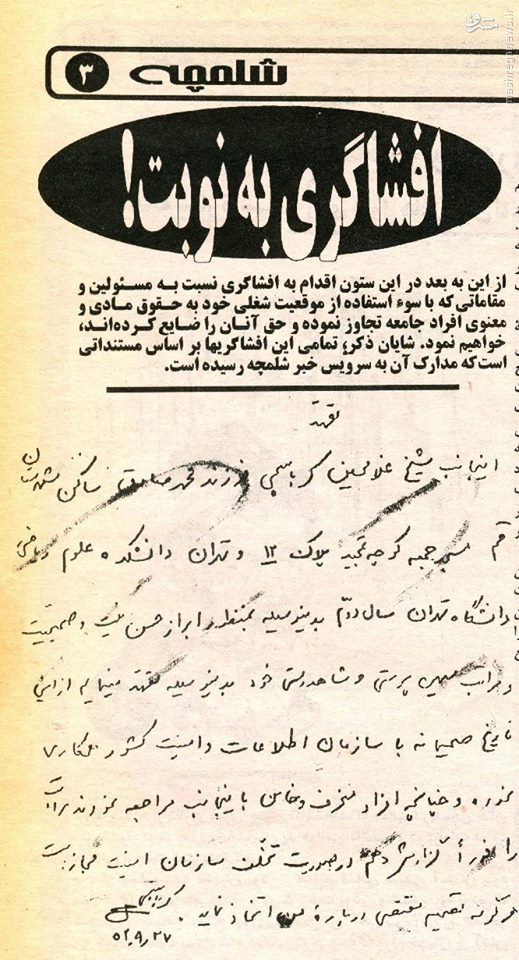 مشرق
mashreghnews.ir
شلمچه ۳
افشاگری به نوبت!
از این به بعد در این ستون اقدام به افشاگری نسبت به مسئولین و
مقاماتی که با سوء استفاده از موقعیت شغلی خود به حقوق مادی و
معنوی افراد جامعه تجاوز نموده و حق آنان را ضایع کرده‌اند،
خواهیم نمود. شایان ذکر، تمامی این افشاگریها بر اساس مستنداتی
است که مدارک آن به سرویس خبر شلمچه رسیده است.
تعهد
اینجانب شیخ غلامحسین کرباسچی فرزند محمد صادق ساکن شهرستان
قم کوچه پلاک ۱۲ و تهران دانشکده علوم ریاضی
دانشگاه تهران سال دوم بدینوسیله بمنظور ابراز حسن نیت و صمیمیت
و مراتب میهن پرستی و شاهدوستی خود بدینوسیله تعهد مینمایم از این
تاریخ صمیمانه با سازمان اطلاعات و امنیت کشور همکاری
نموده و چنانچه افراد منحرف و خائن باینجانب مراجعه نمودند مراتب
را فوراً گزارش دهم در صورت تخلف سازمان امنیت مجاز است
هر گونه تصمیم مقتضی درباره من اتخاذ نماید. کرباسچی
۵۲،۹،۲۷